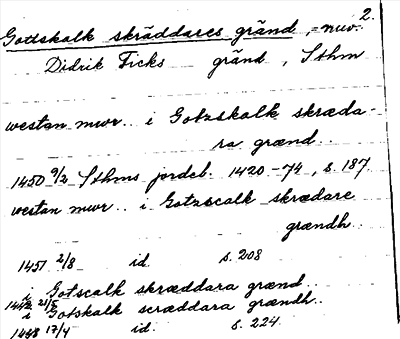 2.
Gottskalk skräddares gränd, = nuv.
Didrik Ficks gränd, Sthm
westan mwr.. i Gotzskalk skræda-
ra grænd..
1450 9/2 Sthms jordeb. 1420-74, s. 187.
westan mwr.. i Gotzscalk skrædare
grændh..
1451 2/8 id. s. 208
i Gotscalk skræddara grænd
i Gotskalk scræddara grændh..
1448 17/4 id. s. 224.